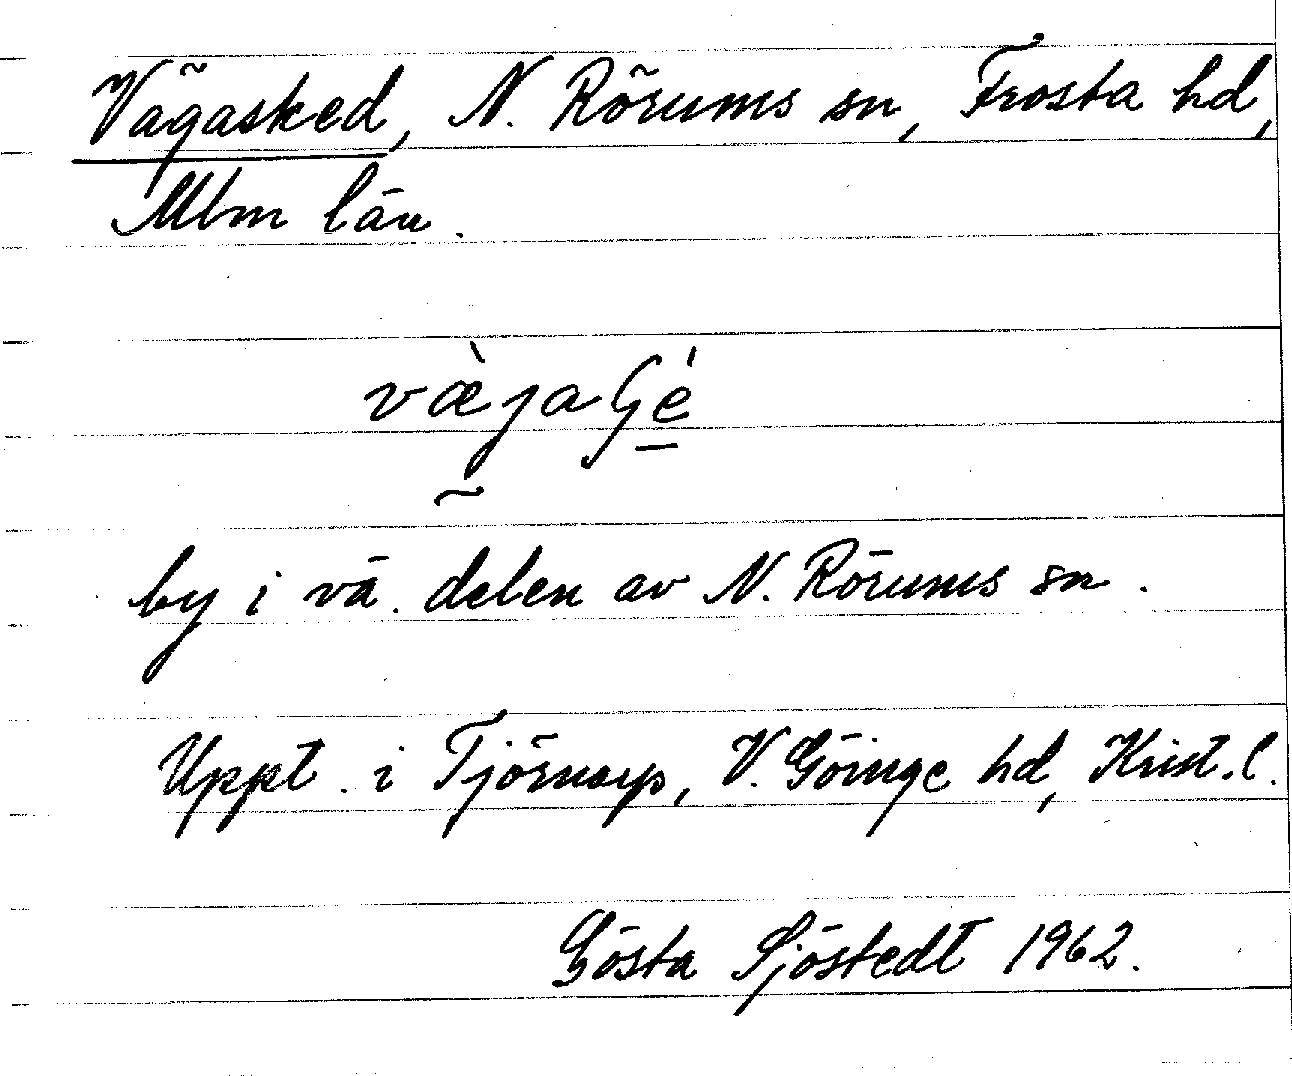 Vägasked, N. Rörums sn, Frosta hd,
Mlm län.
væ̀jaGé
by i vä. delen av N. Rörums sn.
Uppt. i Tjörnarp, V. Göinge hd, Krist. l.
Gösta Sjöstedt 1962.